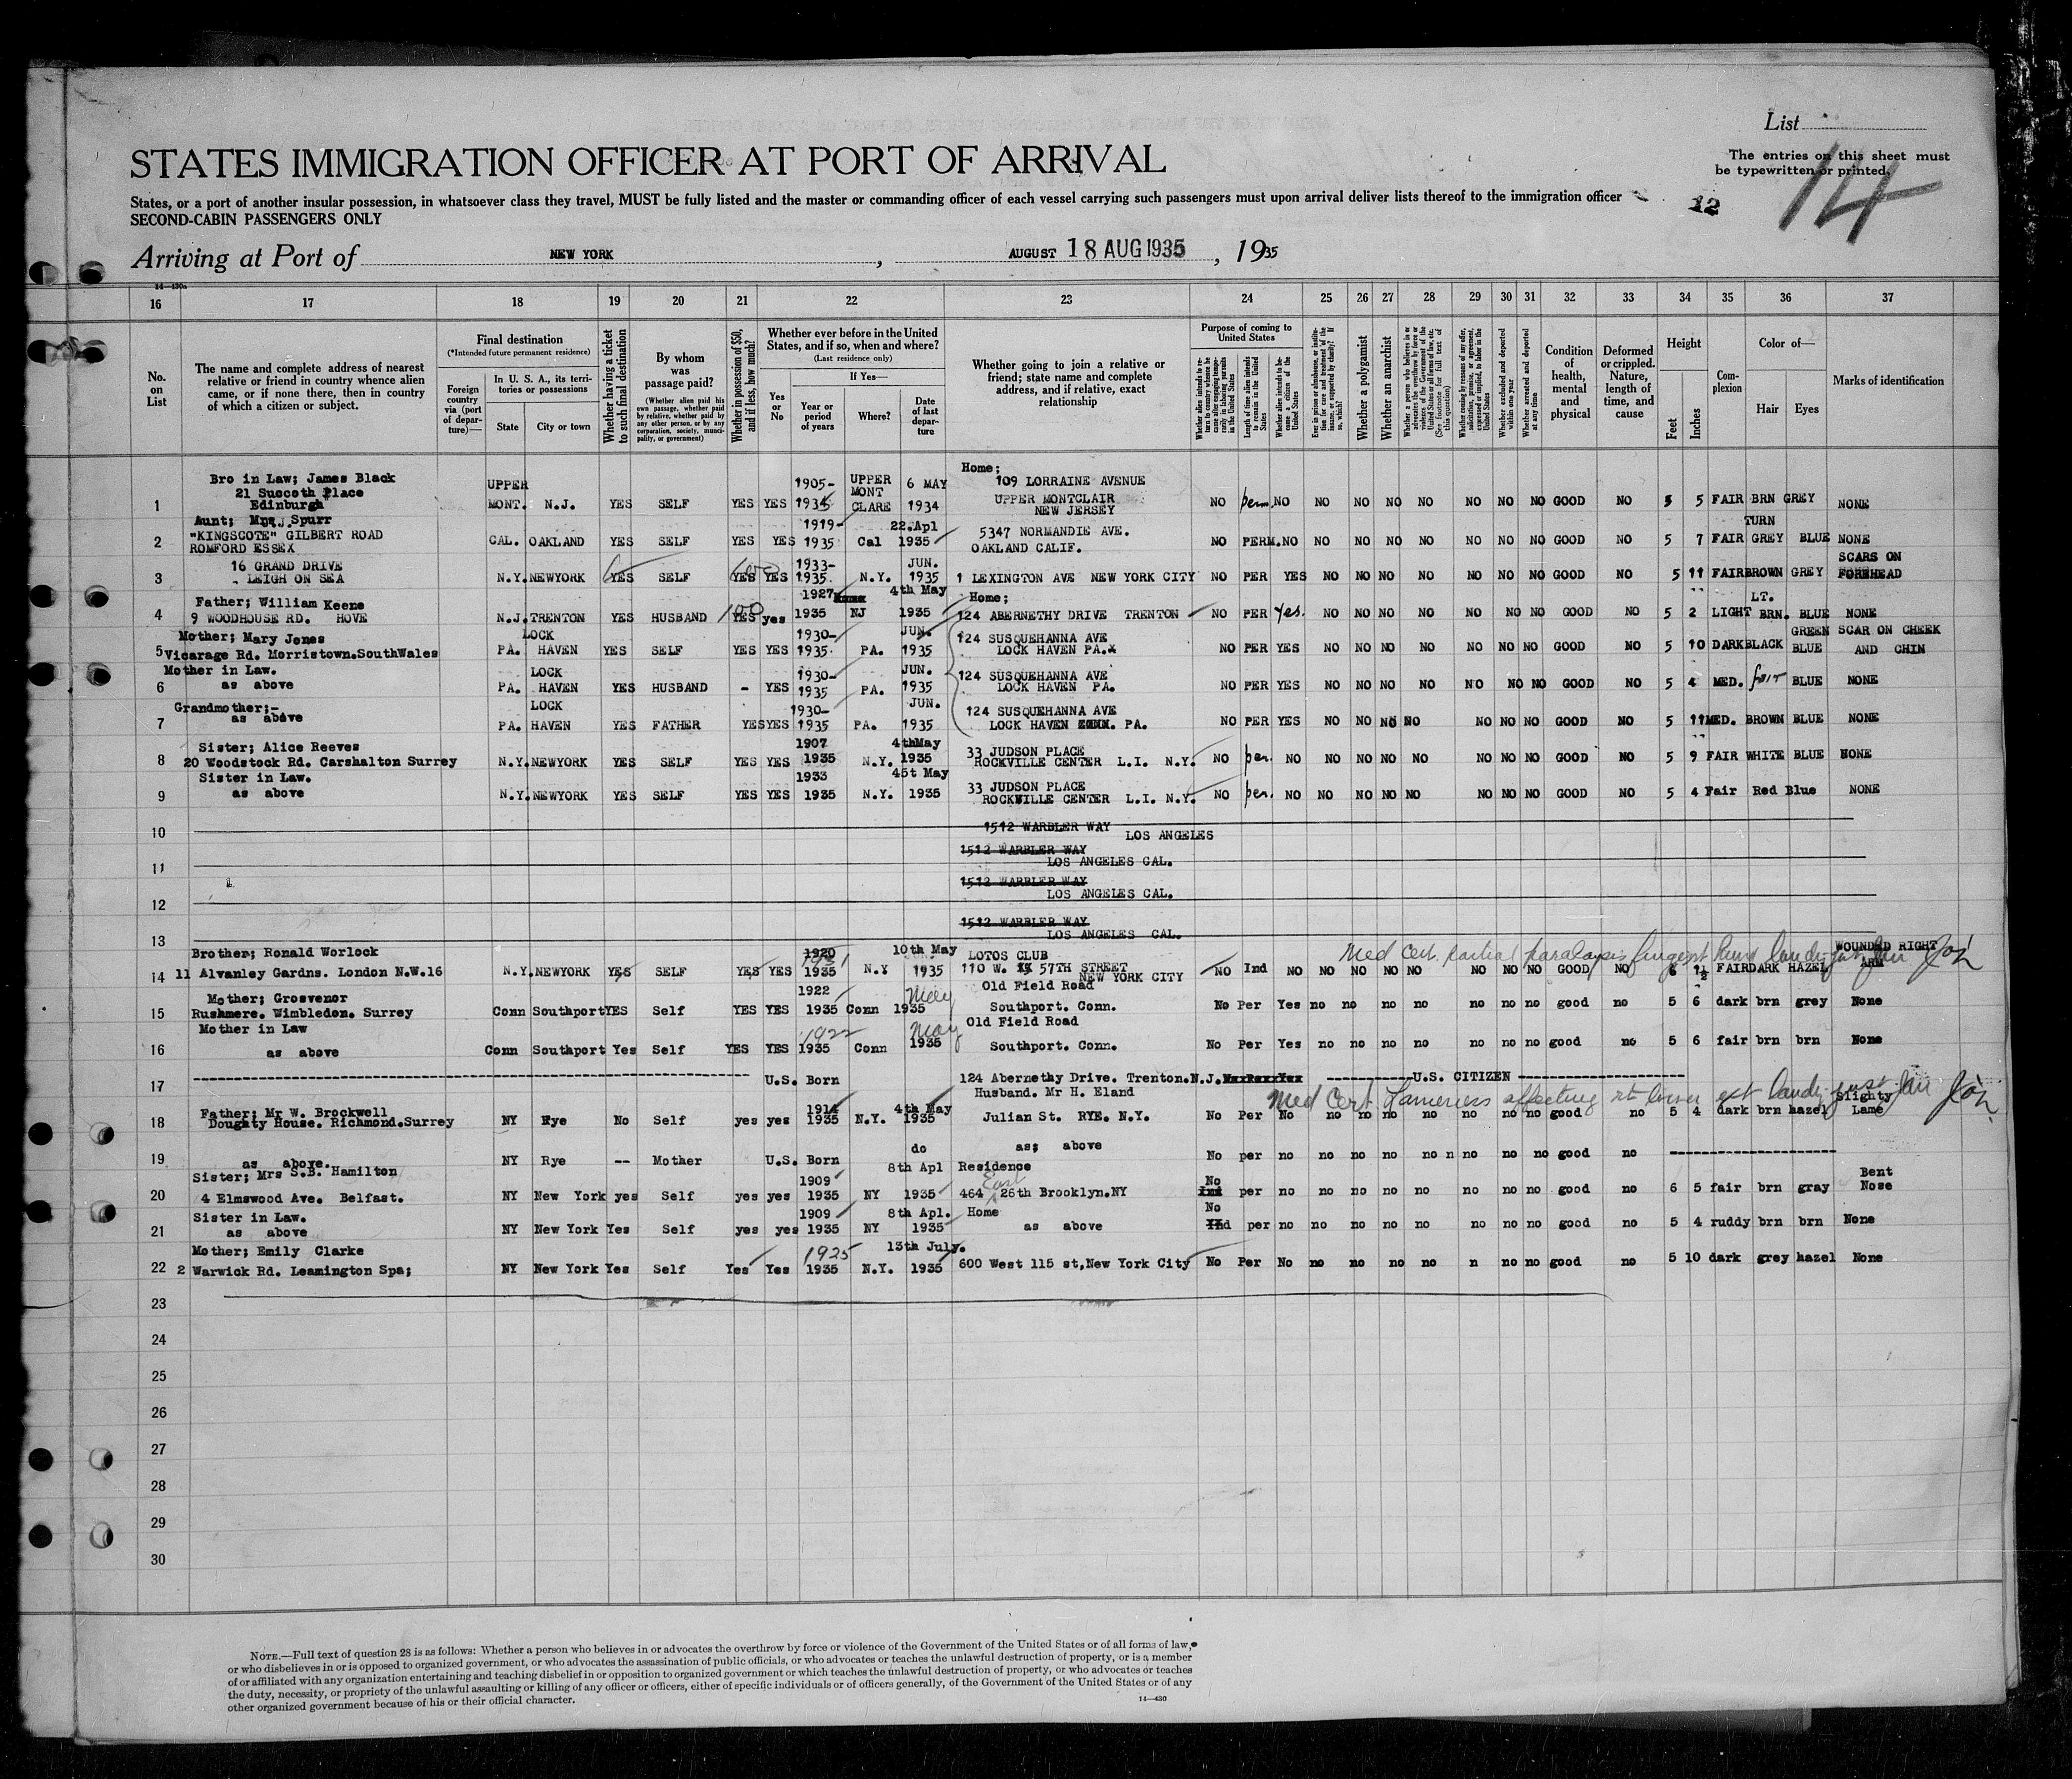 List
The entries on this sheet must
be typewritten or printed.
12
14
STATES IMMIGRATION OFFICER AT PORT OF ARRIVAL
States, or a port of another insular possession, in whatsoever class they travel, MUST be fully listed and the master or commanding officer of each vessel carrying such passengers must upon arrival deliver lists thereof to the immigration officer
SECOND-CABIN PASSENGERS ONLY
Arriving at Port of NEW YORK, AUGUST 18 AUG 1935, 1935
16 17 18 19 20 21 22 23 24 25 26 27 28 29 30 31 32 33 34 35 36 37
No. on List
The name and complete address of nearest relative or friend in country whence alien came, or if none there, then in country of which a citizen or subject.
Final destination
(*Intended future permanent residence)
Foreign country via (port of departure)—
In U. S. A., its territories or possessions
State
City or town
Whether having a ticket to such final destination
By whom was passage paid?
(Whether alien paid his own passage, whether paid by relative, whether paid by any other person, or by any corporation, society, municipality, or government)
Whether in possession of $50, and if less, how much?
Whether ever before in the United States, and if so, when and where?
(Last residence only)
Yes or No
If Yes—
Year or period of years
Where?
Date of last departure
Whether going to join a relative or friend; state name and complete address, and if relative, exact relationship
Purpose of coming to United States
Whether alien intends to return to country whence he came after engaging temporarily in laboring pursuits in the United States
Length of time alien intends to remain in the United States
Whether alien intends to become a citizen of the United States
Ever in prison or almshouse, or institution for care and treatment of the insane, or supported by charity? If so, which?
Whether a polygamist
Whether an anarchist
(See footnote for full text of this question)
Whether excluded and deported within one year
Whether arrested and deported at any time
Condition of health, mental and physical
Deformed or crippled. Nature, length of time, and cause
Height
Feet
Inches
Complexion
Color of—
Hair
Eyes
Marks of identification
1 Bro in Law; James Black 21 Succoth Place Edinburgh UPPER MONT. N.J. YES SELF YES YES 1905- 1934 UPPER MONT CLARE 6 MAY 1934 Home; 109 LORRAINE AVENUE UPPER MONTCLAIR NEW JERSEY NO perm. NO NO NO NO NO NO NO NO GOOD NO 5 5 FAIR BRN GREY NONE
2 Aunt; Mrs. Spurr "KINGSCOTE" GILBERT ROAD ROMFORD ESSEX CAL. OAKLAND YES SELF YES YES 1919- 1935 Cal 22.Apl 1935 5347 NORMANDIE AVE. OAKLAND CALIF. NO PERM. NO NO NO NO NO NO NO NO GOOD NO 5 7 FAIR TURN GREY BLUE NONE
3 16 GRAND DRIVE LEIGH ON SEA N.Y. NEWYORK YES SELF YES YES 1933- 1935. N.Y. JUN. 1935 1 LEXINGTON AVE NEW YORK CITY NO PER YES NO NO NO NO NO NO NO GOOD NO 5 11 FAIR BROWN GREY SCARS ON FOREHEAD
4 Father; William Keene 9 WOODHOUSE RD. HOVE N.J. TRENTON YES HUSBAND 100 YES yes 1927 1935 NJ 4th May 1935 Home; 124 ABERNETHY DRIVE TRENTON NO PER Yes. NO NO NO NO NO NO NO GOOD NO 5 2 LIGHT LT. BRN. BLUE NONE
5 Mother; Mary Jones Vicarage Rd. Morristown.SouthWales PA. LOCK HAVEN YES SELF YES YES 1930- 1935. PA. JUN. 1935 124 SUSQUEHANNA AVE LOCK HAVEN PA. NO PER YES NO NO NO NO NO NO NO GOOD NO 5 10 DARK BLACK GREEN BLUE SCAR ON CHEEK AND CHIN
6 Mother in Law. as above PA. LOCK HAVEN YES HUSBAND - YES 1930- 1935 PA. JUN. 1935 124 SUSQUEHANNA AVE LOCK HAVEN PA. NO PER YES NO NO NO NO NO NO NO GOOD NO 5 4 MED. fair BLUE NONE
7 Grandmother;- as above PA. LOCK HAVEN YES FATHER YES YES 1930- 1935 PA. JUN. 1935 124 SUSQUEHANNA AVE LOCK HAVEN PA. NO PER YES NO NO NO NO NO NO NO GOOD NO 5 11 MED. BROWN BLUE NONE
8 Sister; Alice Reeves 20 Woodstock Rd. Carshalton Surrey N.Y. NEWYORK YES SELF YES YES 1907 1935 N.Y. 4thMay 1935 33 JUDSON PLACE ROCKVILLE CENTER L.I. N.Y. NO per. NO NO NO NO NO NO NO NO GOOD NO 5 9 FAIR WHITE BLUE NONE
9 Sister in Law. as above N.Y. NEWYORK YES SELF YES YES 1933 1935 N.Y. 45t May 1935 33 JUDSON PLACE ROCKVILLE CENTER L.I. N.Y. NO per. NO NO NO NO NO NO NO NO GOOD NO 5 4 Fair Red Blue NONE
10 1512 WARBLER WAY LOS ANGELES
11 1512 WARBLER WAY LOS ANGELES CAL.
12 1512 WARBLER WAY LOS ANGELES CAL.
13 1512 WARBLER WAY LOS ANGELES CAL.
Med Cert partial paralysis
14 Brother; Ronald Worlock 11 Alvanley Gardns. London N.W.16 N.Y. NEWYORK YES SELF YES YES 1920 1931 1935 N.Y 10th May 1935 LOTOS CLUB 110 W. 57TH STREET NEW YORK CITY NO Ind NO NO NO NO NO NO NO NO GOOD NO 6 1½ FAIR DARK HAZEL WOUNDED RIGHT ARM
15 Mother; Grosvenor Rushmere. Wimbledon. Surrey Conn Southport YES Self YES YES 1922 1935 Conn May 1935 Old Field Road Southport. Conn. No Per Yes no no no no no no no good no 5 6 dark brn grey None
16 Mother in Law as above Conn Southport Yes Self YES YES 1922 1935 Conn May 1935 Old Field Road Southport. Conn. No Per Yes no no no no no no no good no 5 6 fair brn brn None
17 U.S. Born 124 Abernethy Drive. Trenton.N.J. U.S. CITIZEN
Med Cert Lameness affecting rt lower ext
18 Father; Mr W. Brockwell Doughty House. Richmond.Surrey NY Rye No Self yes yes 1914 1935 N.Y. 4th May 1935 Husband. Mr H. Eland Julian St. RYE. N.Y. No Per No no no no no no no no good no 5 4 dark brn hazel Slighty Lame
19 as above. NY Rye -- Mother U.S. Born do as; above No per no no no no no n no no no good no
20 Sister; Mrs S.B. Hamilton 4 Elmswood Ave. Belfast. NY New York yes Self yes yes 1909 1935 NY 8th Apl 1935 Residence 464 East 26th Brooklyn.NY No Ind per no no no no no no no no good no 6 5 fair brn gray Bent Nose
21 Sister in Law. as above NY New York Yes Self yes yes 1909 1935 NY 8th Apl. 1935 Home as above No Ind per no no no no no no no no good no 5 4 ruddy brn brn None
22 Mother; Emily Clarke 2 Warwick Rd. Leamington Spa; NY New York Yes Self Yes Yes 1925 1935 N.Y. 13th July. 1935 600 West 115 st,New York City No Per No no no no no n no no good no 5 10 dark grey hazel None
23
24
25
26
27
28
29
30
NOTE.—Full text of question 28 is as follows: Whether a person who believes in or advocates the overthrow by force or violence of the Government of the United States or of all forms of law,
or who disbelieves in or is opposed to organized government, or who advocates the assassination of public officials, or who advocates or teaches the unlawful destruction of property, or is a member
of or affiliated with any organization entertaining and teaching disbelief in or opposition to organized government or which teaches the unlawful destruction of property, or who advocates or teaches
the duty, necessity, or propriety of the unlawful assaulting or killing of any officer or officers, either of specific individuals or of officers generally, of the Government of the United States or of any
other organized government because of his or their official character.
14—430